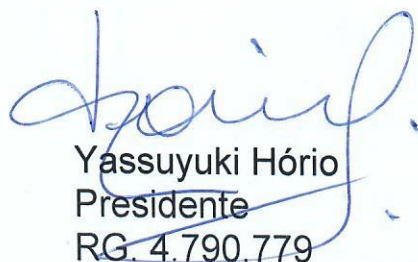 Yassuyuki Hório
Presidente
RG. 4.790.779